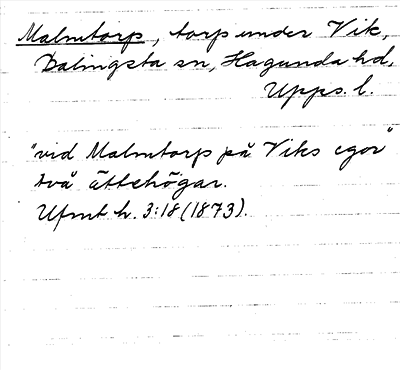 Malmtorp, torp under Vik,
Balingsta sn, Hagunda hd,
Upps. l.
"vid Malmtorp på Viks egor"
två ättehögar.
Ufmt h. 3:18 (1873).